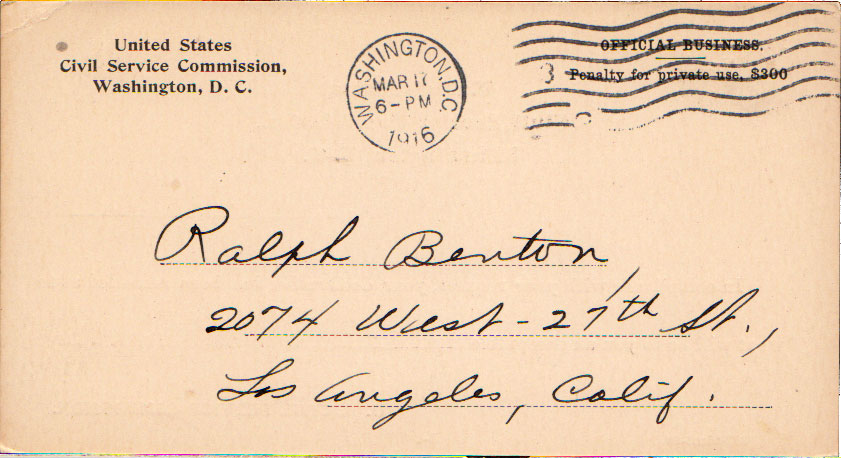 United States
Civil Service Commission,
Washington, D. C.
WASHINGTON, D.C.
MAR 17
6-PM
1916
OFFICIAL BUSINESS.
Penalty for private use, $300
Ralph Benton
2074 West - 27th St.,
Los Angeles, Calif.